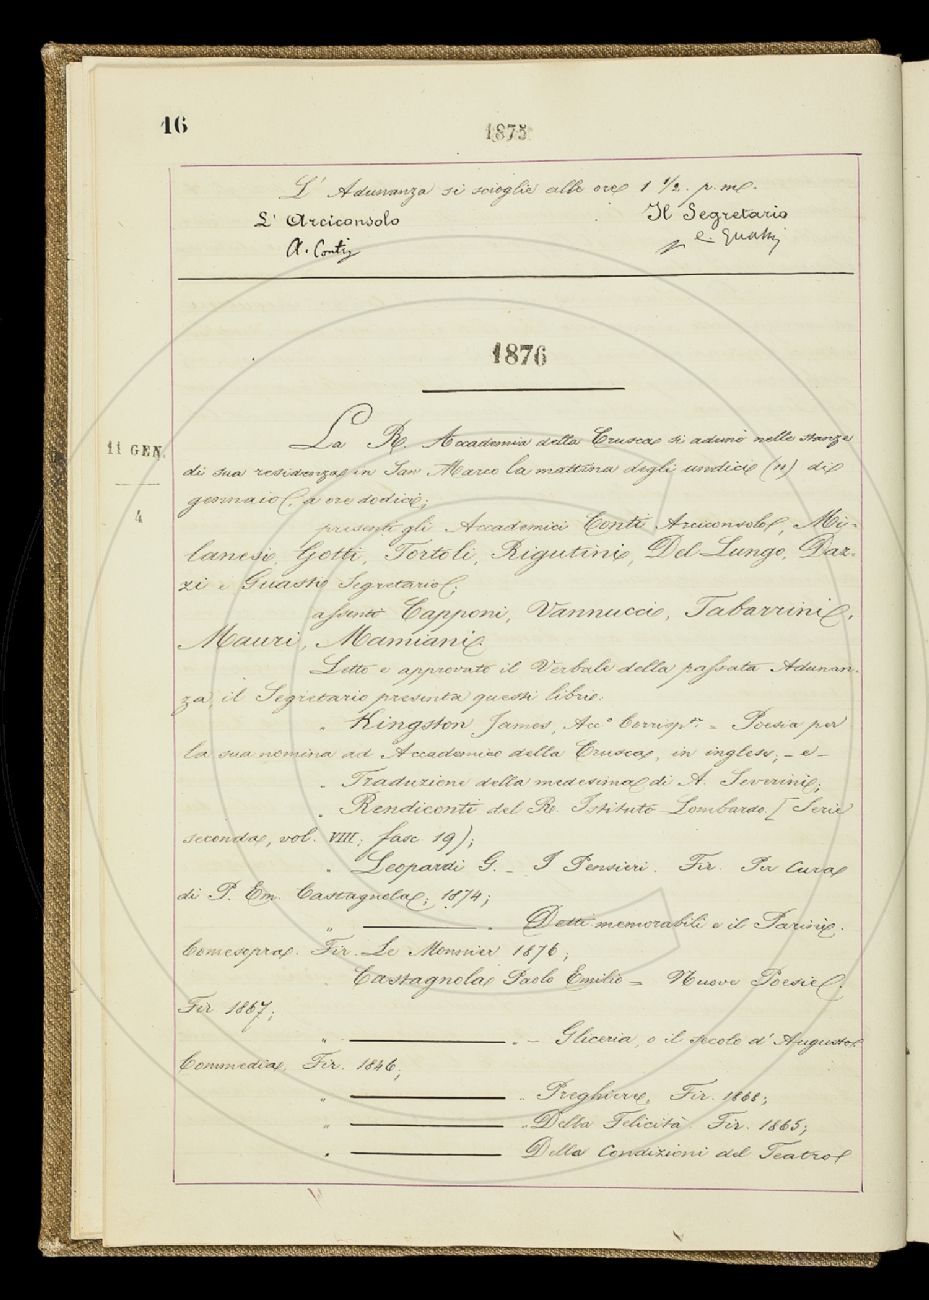 16
1875
L' Adunanza si scioglie alle ore 1 1/2. p. m.
L' Arciconsolo
Il Segretario
A. Conti
C. Guasti
1876
11 GEN.
4
La R. Accademia della Crusca si adunò nelle stanze
di sua residenza in San Marco la mattina degli undici (11) di
gennaio, a ore dodici;
presenti gli Accademici Conti Arciconsolo, Mi-
lanesi, Gotti, Tortoli, Rigutini, Del Lungo, Daz-
zi e Guasti Segretario;
assenti Capponi, Vannucci, Tabarrini,
Mauri, Mamiani.
Letto e approvato il Verbale della passata Adunan-
za, il Segretario presenta questi libri:
" Kingston James, Acc.º Corrisp.te = Poesia per
la sua nomina ad Accademico della Crusca, in inglese, - e -
" Traduzione della medesima di A. Severini;
" Rendiconti del R. Istituto Lombardo, (Serie
seconda, vol. VIII; fasc. 19);
" Leopardi G. - I Pensieri. Fir. Per cura
di P. Em. Castagnola, 1874;
" Detti memorabili e il Parini.
Comesopra. Fir. Le Monnier 1876;
" Castagnola Paolo Emilio = Nuove Poesie,
Fir 1867;
" - Gliceria, o il secolo d' Augusto.
Commedia, Fir. 1846;
" Preghiere, Fir. 1868;
" Della Felicità. Fir. 1865;
" Della Condizioni del Teatro